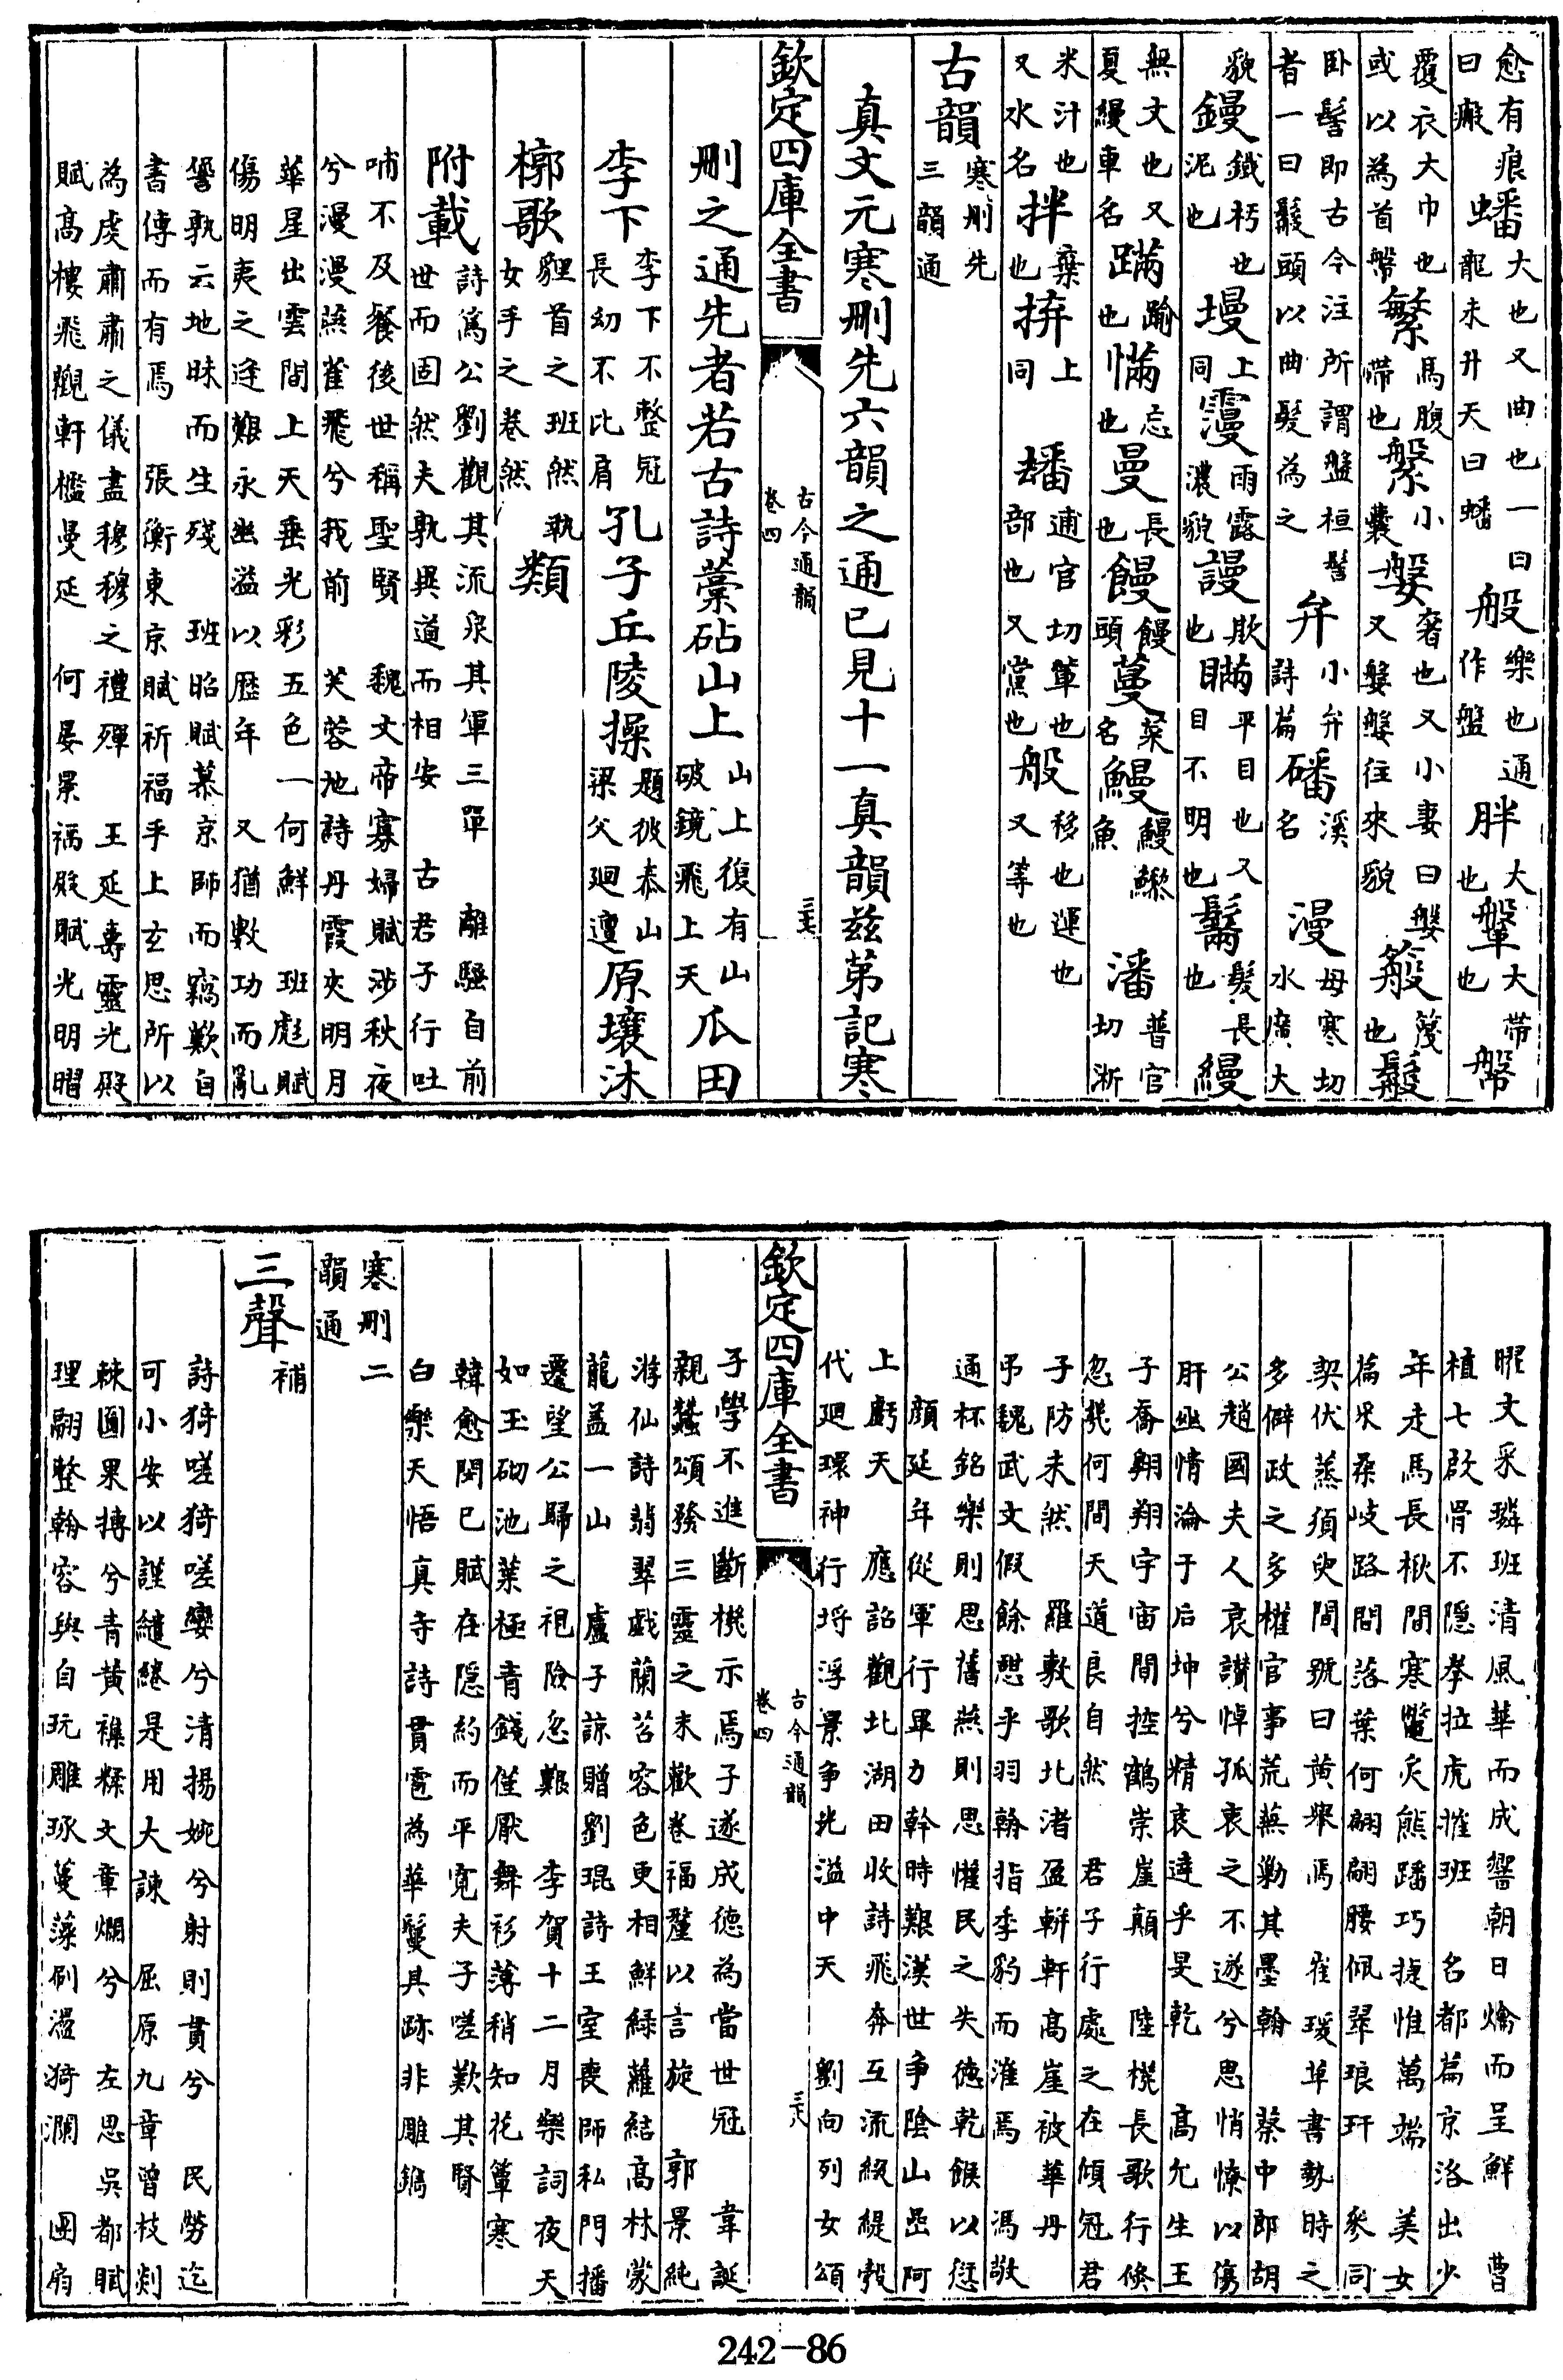 愈有痕曰瘢 蟠 大也又曲也一曰龍未升天曰蟠 般 樂也通作盤 胖 大也 鞶 大帶也 幋
覆衣大巾也或以為首幋 繁 馬腹帶也 縏 小囊 媻 奢也又小妻曰媻又媻媻往來貌
卧髻即古今注所謂盤桓髻者一曰 頭以曲髮為之 弁 小弁詩篇 磻 溪名 漫 母寒切水廣大
貌 鏝 鐵杇也泥也 墁 上同 雨露濃貌 謾 欺也 瞞 平目也又目不明也 鬗 髮長也 縵
無文也又夏縵車名 蹣 踰也 慲 忘也 曼 長也 饅 饅頭 蔓 菜名 鰻 鰻鱺魚 潘 普官切淅
米汁也又水名 拌 棄也 拚 上同 逋官切箄也部也又黨也 般 移也運也又等也
古韻 寒刪先三韻通
真文元寒刪先六韻之通已見十一真韻茲第記寒
欽定四庫全書
古今通韻
卷四
三七
刪之通先者若古詩藁砧山上 山上復有山破鏡飛上天 瓜田
李下 李下不整冠長幼不比肩 孔子丘陵操 題彼泰山梁父迴邅 原壤沐
槨歌 貍首之班然執女手之卷然 類
附載 詩篤公劉觀其流泉其軍三單 離騷自前世而固然夫孰異道而相安 古君子行吐
哺不及餐後世稱聖賢 魏文帝寡婦賦涉秋夜兮漫漫燕雀飛兮我前 芙蓉池詩丹霞夾明月
華星出雲間上天垂光彩五色一何鮮 班彪賦傷明夷之逢艱永幽溢以歷年 又猶數功而亂
譽孰云地昧而生殘 班昭賦慕京師而竊歎自書傳而有焉 張衡東京賦祈福乎上玄思所以
為虔肅肅之儀盡穆穆之禮殫 王延壽靈光殿賦高樓飛觀軒檻曼延 何晏景福殿賦光明熠
曜文采璘班清風萃而成響朝日爚而呈鮮 曹植七啟骨不隱拳拉虎摧班 名都篇京洛出少
年走馬長楸間寒鼈炙熊蹯巧捷惟萬端 美女篇采桑岐路間落葉何翩翩腰佩翠琅玕 參同
契伏蒸須臾間號曰黃轝焉 崔瑗草書勢時之多僻政之多權官事荒蕪勦其墨翰 蔡中郎胡
公趙國夫人哀讃悼孤衷之不遂兮思悄憭以傷肝幽情淪于后坤兮精哀達乎昊乾 高允生王
子喬翔翔宇宙間控鶴崇崖顛 陸機長歌行倏忽幾何間天道良自然 君子行處之在傾冠君
子防未然 羅敷歌北渚盈軿軒高崖被華丹 弔魏武文假餘憇乎羽翰指季豹而漼焉 馮敬
通杯銘樂則思舊燕則思懽民之失德乾餱以愆 顏延年從軍行畢力幹時艱漢世爭陰山 阿
上虧天 應詔觀北湖田收詩飛奔互流綴緹彀代迴環神行埒浮景爭光溢中天 劉向列女頌
欽定四庫全書
古今通韻
卷四
三八
子學不進斷機示焉子遂成德為當世冠 韋誕親蠶頌務三靈之末歡卷福釐以言旋 郭景純
游仙詩翡翠戲蘭苕容色更相鮮綠蘿結高林蒙籠蓋一山 盧子諒贈劉琨詩王室喪師私門播
遷望公歸之視險忽艱 李賀十二月樂詞夜天如玉砌池葉極青錢僅厭舞衫薄稍知花簟寒
韓愈閔已賦在隱約而平寬夫子嗟歎其賢 白樂天悟真寺詩貫雹為華鬘其跡非雕鐫
寒刪二韻通
三聲 補
詩猗嗟猗嗟孌兮清揚婉兮射則貫兮 民勞迄可小安以謹繾綣是用大諫 屈原九章曾枝剡
棘圓果摶兮青黃襍糅文章爛兮 左思吳都賦理翮整翰容與自玩雕琢蔓藻刷盪猗瀾 團扇
242-86